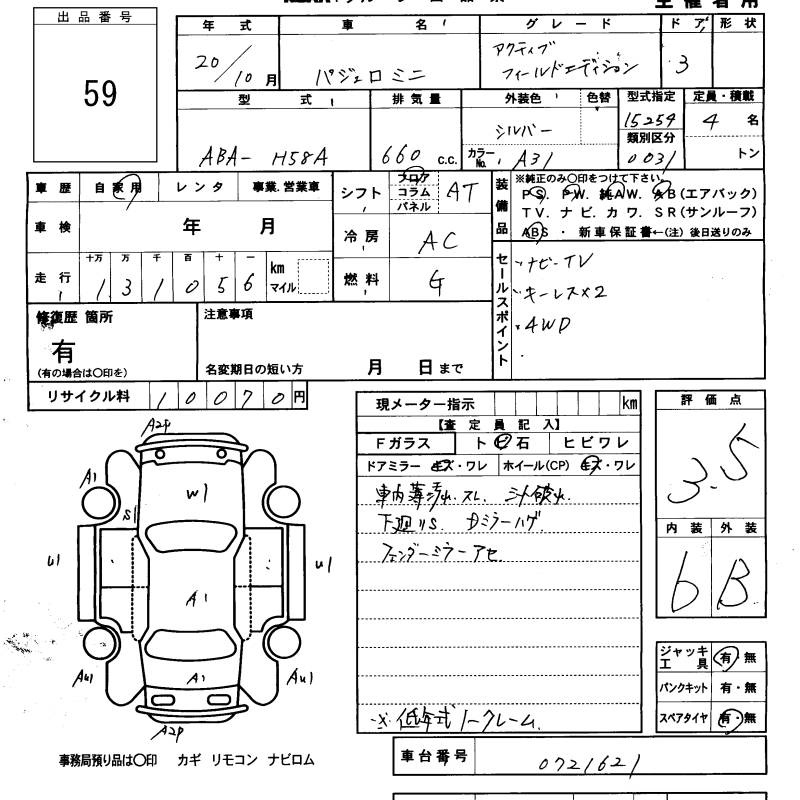 出品番号
59
年式 車名 グレード ドア 形状
20/10月 パジェロミニ アクティブフィールドエディション 3
型式 排気量 外装色 色替 型式指定 定員・積載
ABA- H58A 660 c.c. シルバー 15259 4 名
カラーNo. A31 類別区分 0031 トン
車歴 自家用 レンタ 事業.営業車
車検 年 月
走行 十万 万 千 百 十 一
1 3 1 0 5 6 km マイル
シフト フロア コラム パネル AT
冷房 AC
燃料 G
装備品
※純正のみ〇印をつけて下さい。
PS. PW. 純AW. AB(エアバック)
TV. ナビ. カワ. SR(サンルーフ)
ABS ・ 新車保証書←(注) 後日送りのみ
セールスポイント
・ナビ-TV
・キーレス×2
・4WD
修復歴 箇所
有
(有の場合は〇印を)
注意事項
名変期日の短い方 月 日まで
リサイクル料 10070円
現メーター指示 km
【査定員記入】
Fガラス ト ビ石 ヒビワレ
ドアミラー キズ・ワレ ホイール(CP) キズ・ワレ
車内薄汚れ.スレ.
下廻りS. Dミラーハゲ.
フェンダーミラーアセ.
低年式ノークレーム.
評価点
3.5
内装 外装
6 B
ジャッキ工具 有・無
パンクキット 有・無
スペアタイヤ 有・無
A2P
A1
W1
S1
U1
U1
A1
A1
AU1
AU1
A2P
事務局預り品は〇印 カギ リモコン ナビロム
車台番号 0721621